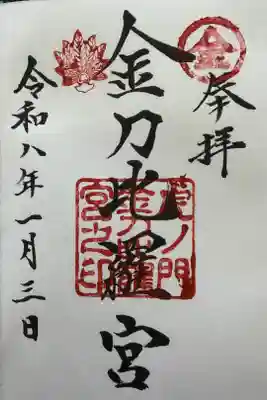 金
奉拝
金刀比羅宮
虎ノ門
宮之印
令和八年一月三日